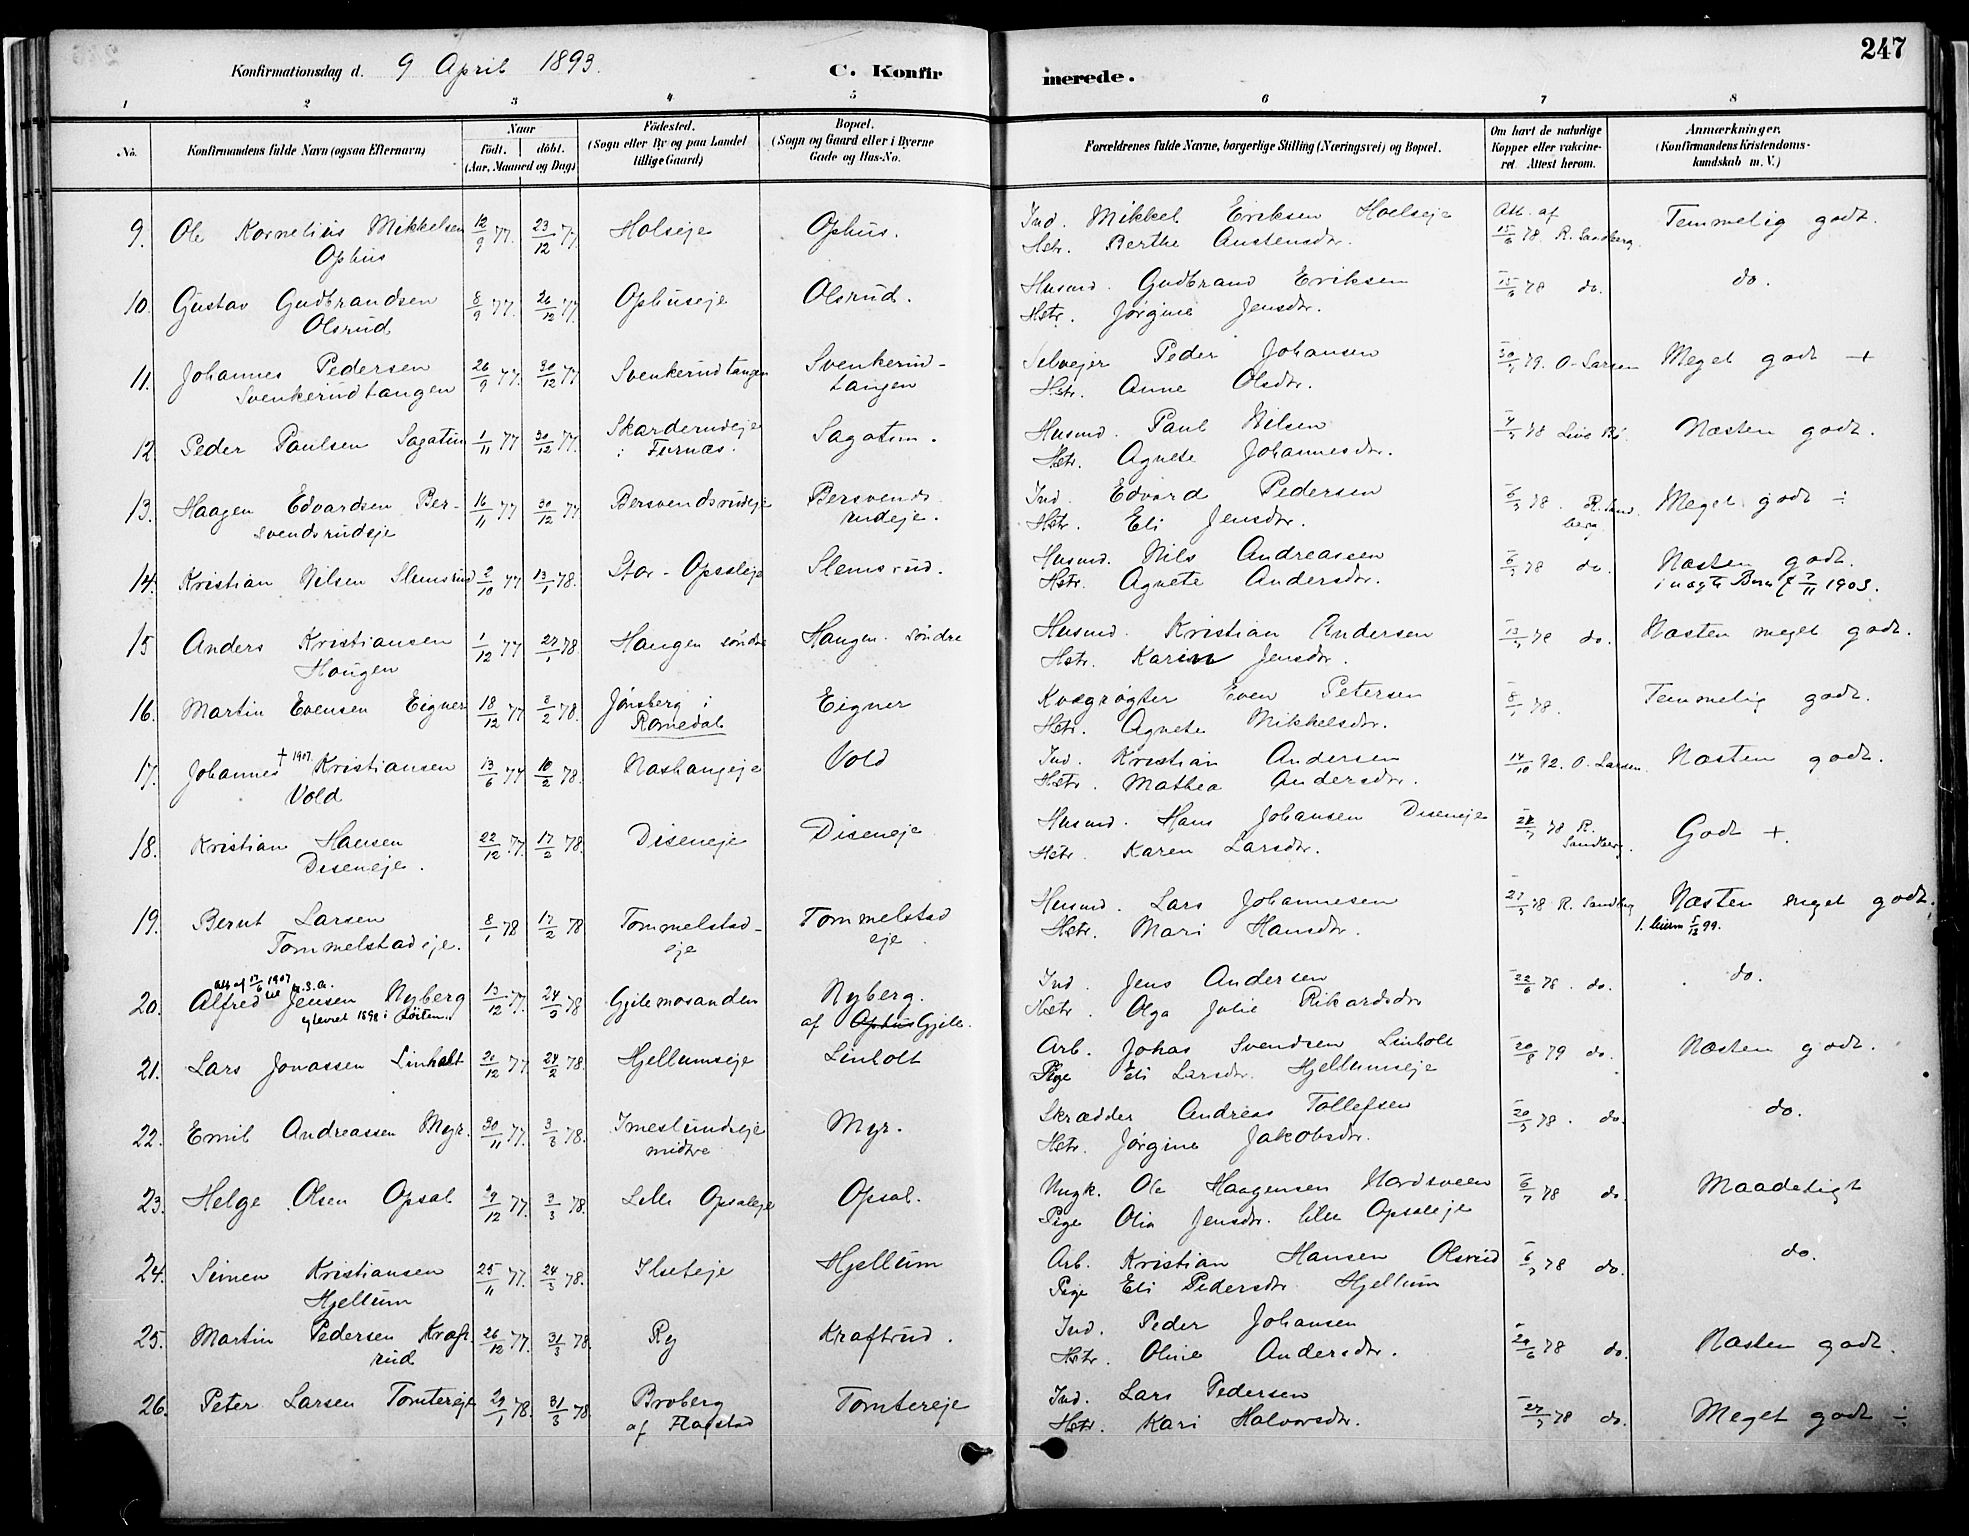 Konfirmationsdag d. 9 April 1893. C. Konfirmerede. 247
1 2 3 4 5 6 7 8
No. Konfirmandens fulde Navn (ogsaa Efternavn) Naar født. døbt. (Aar, Maaned og Dag) Fødested. (Sogn eller By og paa Landet tillige Gaard) Bopæl. (Sogn og Gaard eller i Byerne Gade og Hus-No. Forældrenes fulde Navne, borgerlige Stilling (Næringsvei) og Bopæl. Om havt de naturlige Kopper eller vakcineret. Attest herom. Anmærkninger. (Konfirmandens Kristendomskundskab m. V.)
9. Ole Kornelius Mikkelsen 12/9 77. 23/12 77. Holseje Ophus. Ind. Mikkel Eriksen Hoelseje Att. af Temmelig godt.
Ophus Hstr. Berthe Austensdr. 15/6 78. R. Sandberg.
10. Gustav Gudbrandsen 8/9 77. 26/12 77. Ophuseje Olsrud. Husmd. Gudbrand Eriksen 78 do. do.
Olsrud Hstr. Jørgine Jensdr.
11. Johannes Pedersen 26/9 77. 30/12 77 Svenkerudtangen Svenkerud- Selvejer Peder Johansen 79. O. Larsen Meget godt +
Svenkerudtangen tangen Hstr. Anne Olsdr.
12 Peder Paulsen Sagatun 1/11 77 30/12 77. Skarderudeje Sagatun. Husmd. Paul Nilsen 78 Næsten godt.
i Furnæs. Hstr. Agnete Johannesdr.
13. Haagen Edvardsen Ber- 16/11 77 30/12 77 Bersvendsrudeje Bersvends Ind. Edvard Pedersen 78. R. Sand Meget godt ÷
svendsrudeje rudeje. Hstr. Eli Jensdr. berg
14. Kristian Nilsen Slemsrud 2/10 77 13/1 78. Stor-Opsaleje Slemsrud. Husmd. Nils Andreasen 78 do. Næsten godt.
Hstr. Agnete Andersdr. 1903.
15 Anders Kristiansen 1/12 77 27/1 78 Haugen søndre Haugen søndre Husmd. Kristian Andersen 78 do. Næsten meget godt.
Haugen Hstr. Karin Jensdr.
16. Martin Evensen Eigner 18/12 77 3/2 78. Jønsberg i Eigner Kvægrøgter Even Petersen 78. Temmelig godt.
Romedal Hstr. Agnete Mikkelsdr.
17. Johannes † 1907. Kristiansen 13/6 77 10/2 78. Næshangeje Vold Ind. Kristian Andersen 14/10 92. O. Larsen. Næsten godt.
Vold Hstr. Mathea Andersdr.
18. Kristian Hansen 22/12 77. 17/2 78. Diseneje Diseneje Husmd. Hans Johansen Diseneje 78 R. Godt +.
Diseneje. Hstr. Karen Larsdr. Sandberg.
19. Bernt Larsen 8/1 78 17/2 78 Tommelstad- Tommelstad Husmd. Lars Johannesen 78 R. Sandberg Næsten meget godt.
Tommelstadeje. eje eje. Hstr. Mari Hansdr. 99.
Att. af 17/6 1907 til U.S.A.
20. Alfred Jensen Nyberg 13/12 77. 24/2 78 Gjilemosanden Nyberg. Ind. Jens Andersen 22/6 78. do. do.
1898 i Løiten. af Ophus Gjile. Hstr. Olga Julie Rikardsdr
21. Lars Jonassen Linholt 20/12 77 24/2 78. Hjellumseje Linholt Arb. Johas Svendsen Linholt 20/8 79 do. Næsten godt.
Pige Eli Larsdr. Hjellumseje
22. Emil Andreassen Myr. 30/11 77. 3/3 78. Imeslundseje Myr. Skrædder Andreas Tollefsen 78. do. do.
midtre Hstr. Jørgine Jakobsdr.
23. Helge Olsen Opsal 19/12 77. 3/3 78. Lille Opsaleje Opsal. Ungk. Ole Haagensen Nordsveen 78 do. Maadeligt
Pige Olia Jensdr. lille Opsaleje
24. Simen Kristiansen 25/11 77. 24/3 78. Ilseteje Hjellum Arb. Kristian Hansen Olsrud 78 do. do.
Hjellum Pige Eli Pedersdr. Hjellum
25. Martin Pedersen Kraft- 26/12 77. 31/3 78. Ry Kraftrud. Ind. Peder Johansen 78 do. Næsten godt.
rud Hstr. Oline Andersdr.
26. Peter Larsen Tomtereje 29/1 78. 31/3 78. Broberg Tomtereje Ind. Lars Pedersen 78 do. Meget godt ÷
af Flagstad Hstr. Kari Halvorsdr.